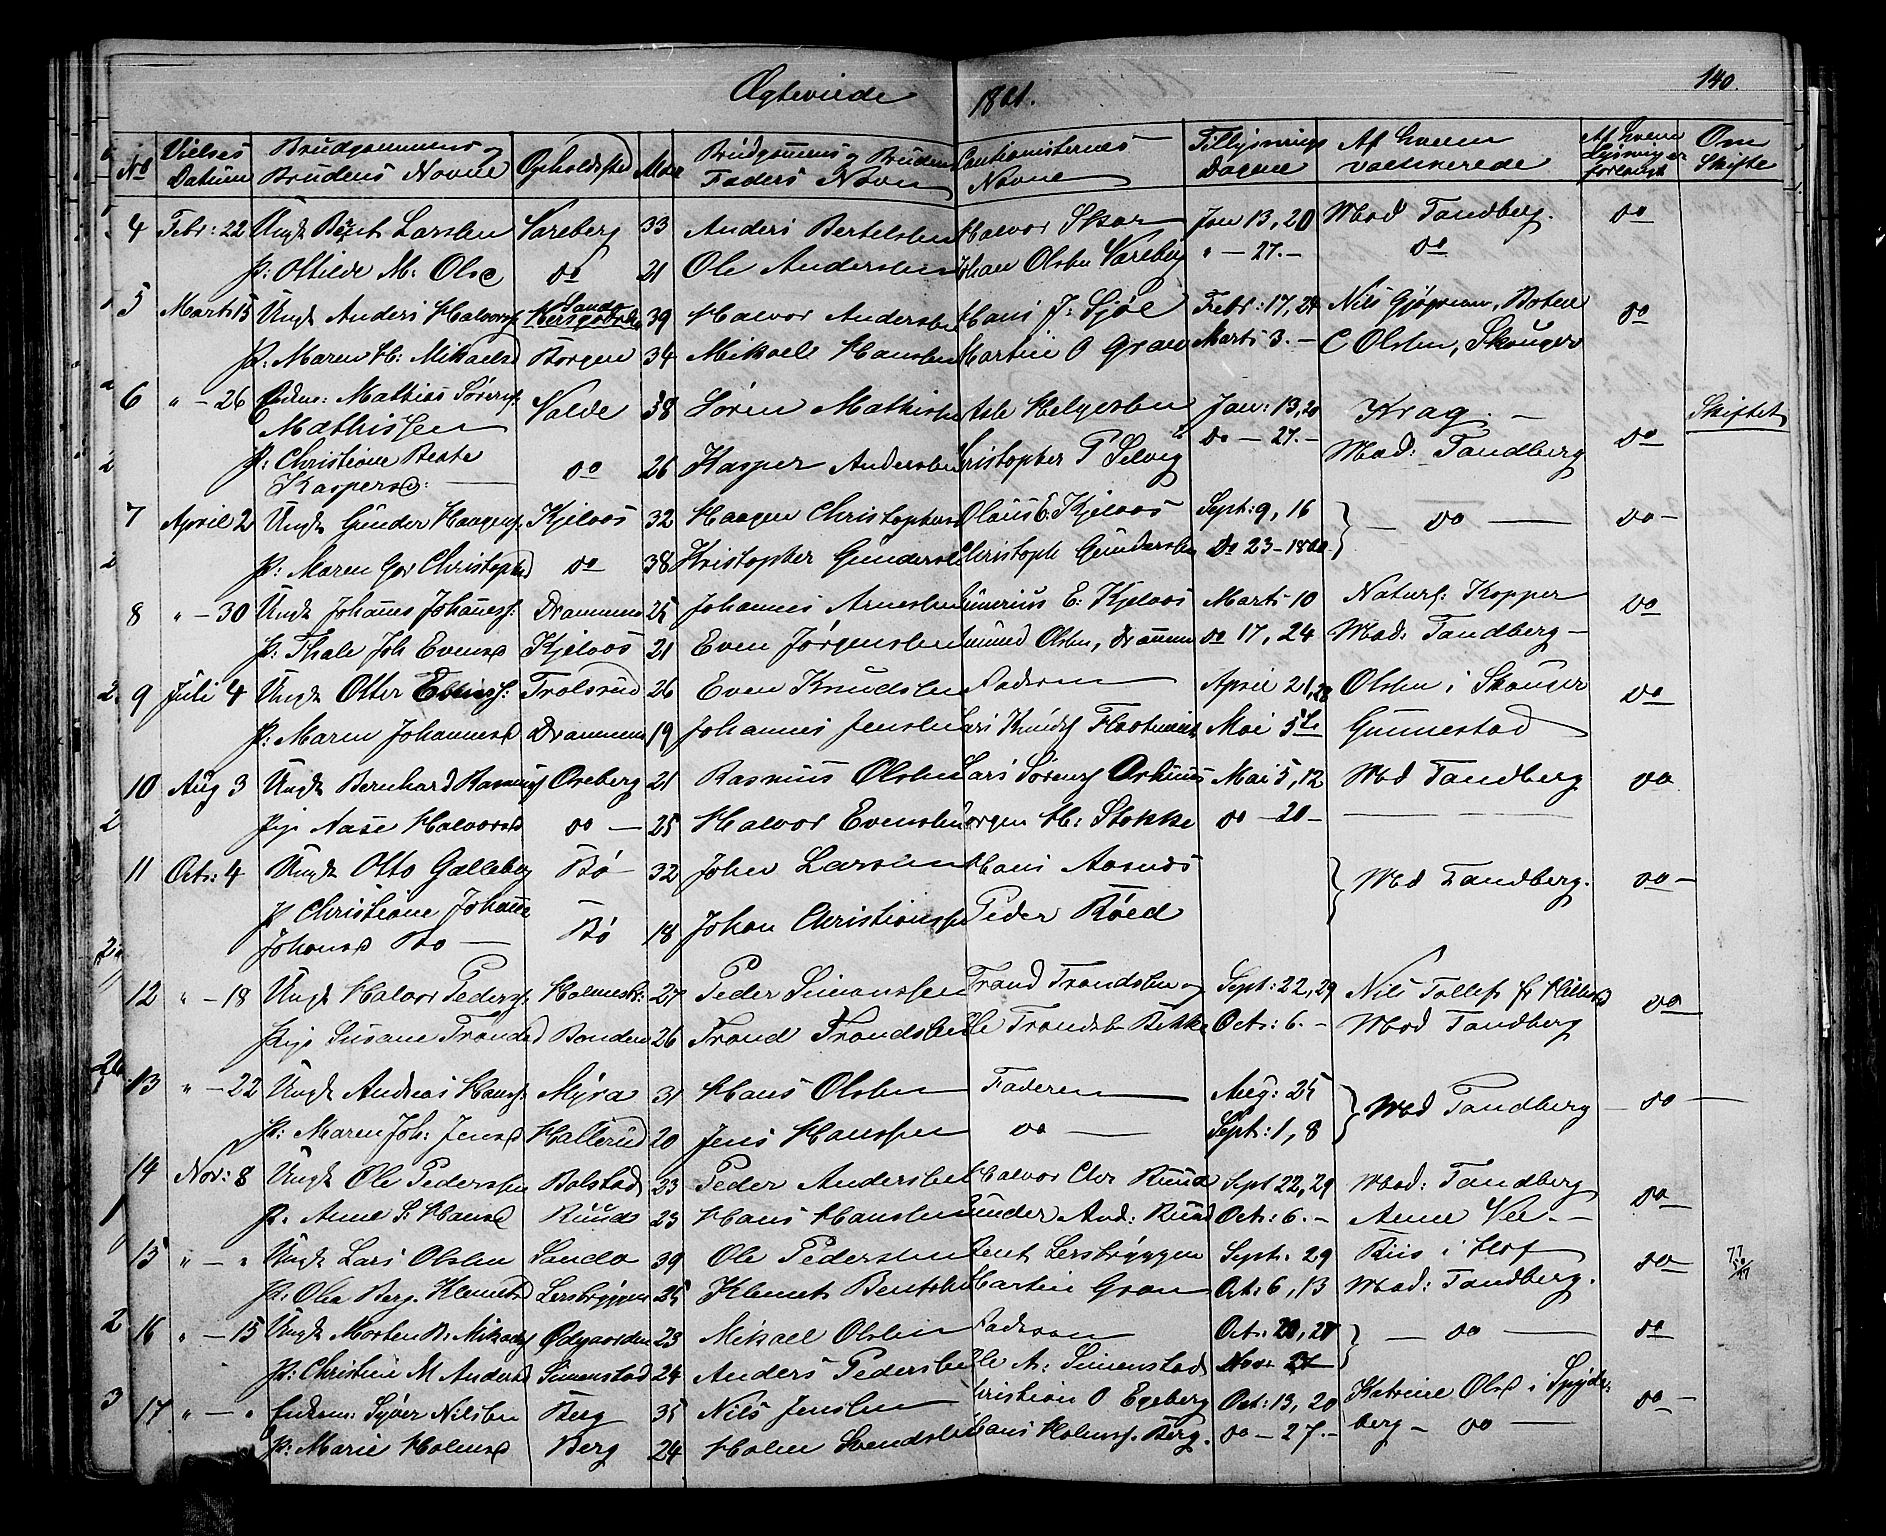 Ægteviede 1861. 140.
No Vielses Datum Brudgommens og Brudens Navne Opholdsted Alder Brudgommens og Brudens Faders Navn Cautionisternes Navne Tillysnings Dagene Af hvem vaccinerede Af hvem Lysning er forlangt Om Skifte
4 Febr: 22 Ungk Berut Larssen Vareberg 33 Anders Bertelssen Halvor Skar Jan 13, 20 Mad Tandberg. do
P: Ottilde M: Olsd do 21 Ole Anderssen Johan Olsen Vareberg " - 27. - do
5 Marts 15 Ungk Anders Halvors: Sando 39 Halvor Anderssen Hans J: Sjøl Febr: 17, 24 Nils Gjøgrenn, Botne do
P: Maren H: Mikaelsd Borgen 34 Mikaell Hanssen Martin O Gran Marts 3. - C Olsen, Skouger
6 " - 26 Enkem: Mathias Sørens: Valde 38 Søren Mathissen Asle Helgessen Jan: 13, 20 Krag. - Skiftet
Mathissen
P: Christiane Beate do 26 Kasper Anderssen Christopher P Selvig do - 27. - Mad: Tandberg do
Kaspersd: -
7 April 2 Ungk Gunder Haagens: Kjelaas 32 Haagen Christophers Olaus E: Kjelaas Sept: 9, 16 - do - do -
P: Maren Gor Christophsd do 38 Kristopher Gunderss Christoph Gunderssen Do 23 - 1860.
8 " - 30 Ungk Johannes Johanness: Drammen 25 Johannes Arnessen E: Kjelaas Marts 10 Naturf: Kopper do
P: Thale Joh Evensd Kjelaas 21 Even Jørgenssen Amund Olsen, Drammen do 17, 24 Mad: Tandberg -
9 Juli 4 Ungk Otter Evens: Trolsrud 26 Even Knudssen Faderen April 21, 28 Olsen i Skouger do
P: Maren Johannesd Drammen 19 Johannes Jenssen Lars Knuds Mai 5te Gunnestad
10 Aug 3 Ungk Bernhard Rasmuss Oreberg 21 Rasmus Olssen Lars Sørens Mai 5, 12 Mad Tandberg do
Pige Nase Halvorsd do - 25 Halvor Evenssen Jørgen H: Stokke do - 20 -
11 Oct: 4 Ungk Otto Galleberg Bø - 32 John Larssen Hans Aasnes Mad Tandberg. do -
P Christiane Johanne Bø 18 Johan Christianssen Peder Røed
Johansd Bø -
12 " - 18 Ungk Halvor Peders: Holmestr: 27 Peder Simonssen Trond Trondssen og Sept: 22, 29 Nils Tollefs fr Hillestd do
Pige Susane Trondsd Bonden 26 Trond Trondssen Ole Tronds Bekke Oct: 6. - Mad Tandberg
13 " - 22 Ungk Andreas Hanss: Myra 31 Hans Olssen Faderen Aug: 25 Mad Tandberg - do -
P: Maren Joh: Jensd Hallerud 20 Jens Hanssen do - Sept: 1, 8
14 Nov: 8 Ungk Ole Pederssen Bolstad 23 Peder Anderssen Halvor Chr Ruud Sept 22, 29 Mad: Tandberg do
P: Anne S: Hansd Ruud 23 Hans Hanssen Gunder And: Ruud Oct: 6. - Anne Vee. -
15 " - " Ungk Lars Olssen Sando 39 Ole Pederssen Bent Lersbryggen Sept: 29 Riis i Hof do
P: Olea Berg. Klemetsd Lersbryggen 25 Klemet Bentssen Martin Gran Oct: 6, 13 Mad: Tandberg.
16 " - 15 Ungk Morten B: Mikaels Ødgaarden 23 Mikael Olssen Faderen Oct: 20, 27 - do - do
P: Christine M Andersd Simenstad 24 Anders Pederssen Ole A: Simenstad Nov:
17 " - " Enkem: Syver Nilssen Berg 35 Nils Jenssen Christian O Egeberg Oct: 13, 20 Katrine Olsd i Spyde- do -
P: Marie Holmsd Berg 24 Holm Svendssen Hans Holmss: Berg. do - 27. - berg - do -